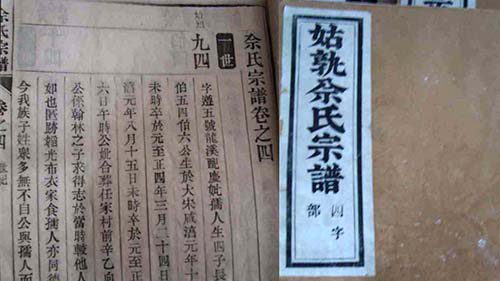 佘氏宗譜卷之四
一世
九四
字遵五號龍溪配慶妣孺人生四子長
伯五四伯六公生於大宋咸淳元年十
未時卒於元至正四年三月二十四日
淳元年八月十五日未時卒於元至正
六日午時公妣合葬任宋村前辛乙向
公係翰林之子求得志於當時較他人
如也匿跡韜光布衣家食孺人亦同德
今我族子姓眾多無不自公與孺人而
佘氏宗譜
卷之四
姑孰佘氏宗譜
四字部